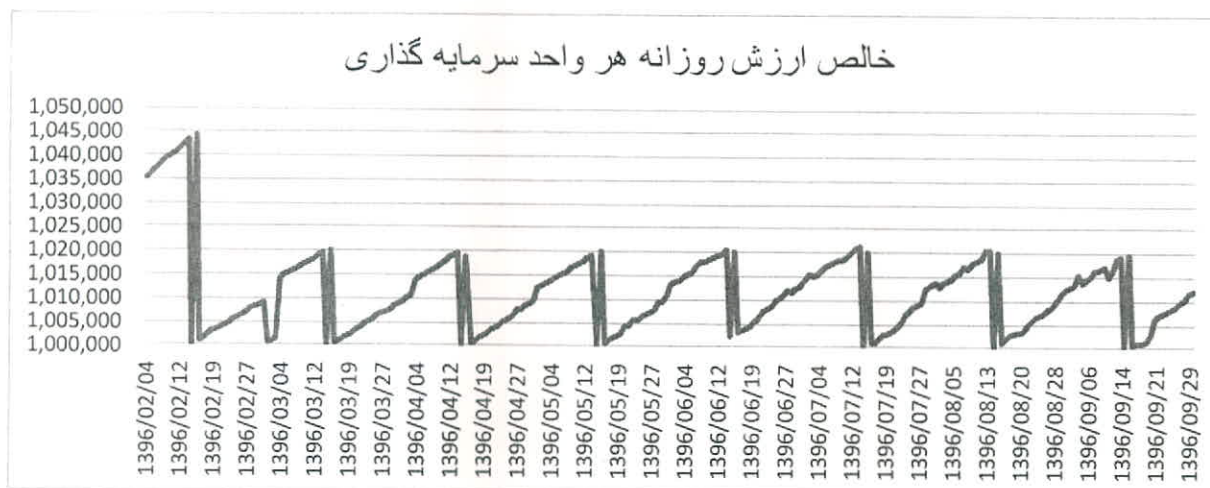 خالص ارزش روزانه هر واحد سرمایه گذاری
1,050,000
1,045,000
1,040,000
1,035,000
1,030,000
1,025,000
1,020,000
1,015,000
1,010,000
1,005,000
1,000,000
1396/02/04
1396/02/12
1396/02/19
1396/02/27
1396/03/04
1396/03/12
1396/03/19
1396/03/27
1396/04/04
1396/04/12
1396/04/19
1396/04/27
1396/05/04
1396/05/12
1396/05/19
1396/05/27
1396/06/04
1396/06/12
1396/06/19
1396/06/27
1396/07/04
1396/07/12
1396/07/19
1396/07/27
1396/08/05
1396/08/13
1396/08/20
1396/08/28
1396/09/06
1396/09/14
1396/09/21
1396/09/29